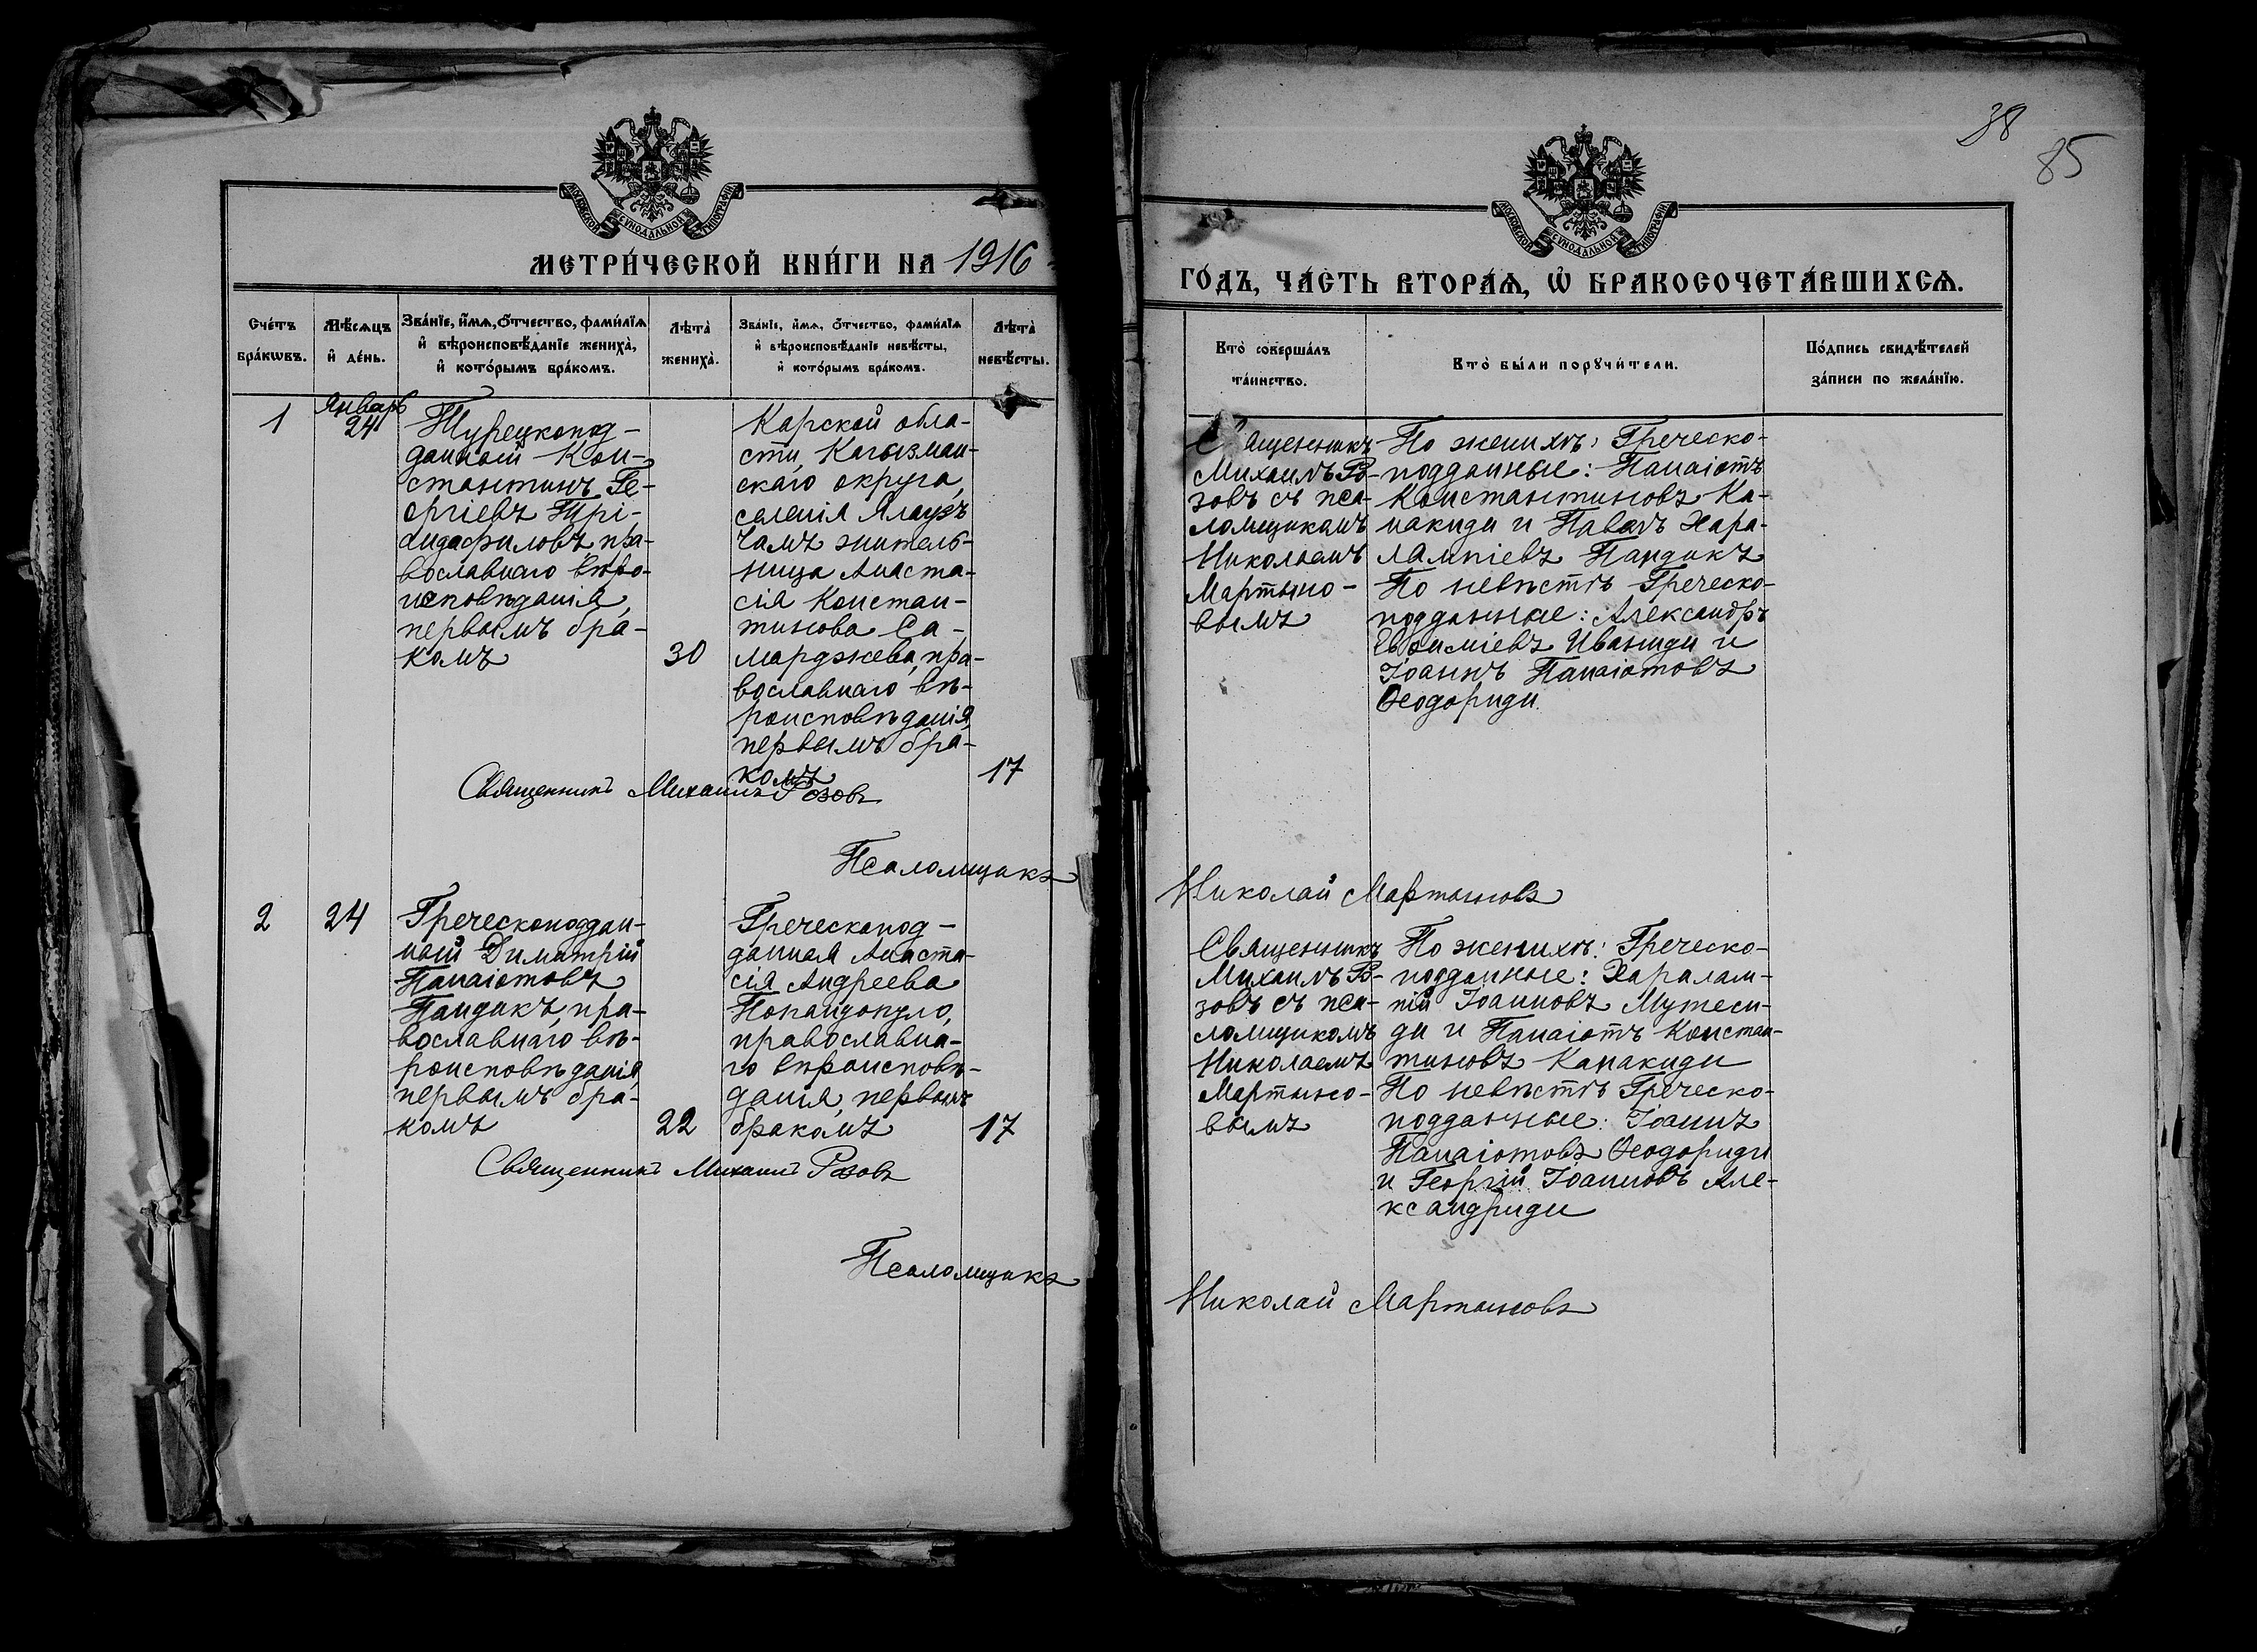 38
85
МОСКОВСКОЙ СѴНОДАЛЬНОЙ ТИПОГРАФІИ
МОСКОВСКОЙ СѴНОДАЛЬНОЙ ТИПОГРАФІИ
МЕТРИ́ЧЕСКОЙ КНИ́ГИ НА 1916
ГО́ДЪ, ЧА́СТЬ ВТОРА́Ѧ, Ѽ БРАКОСОЧЕТА́ВШИХСѦ.
Сче́тъ
бра́кѡвъ.
Мѣ́сѧцъ
и҆ де́нь.
Зва́нїе, и҆́мѧ, ѻ҆́тчество, фами́лїѧ
и҆ вѣроисповѣ́данїе жениха̀,
и҆ кото́рымъ бра́комъ.
Лѣта̀
жениха̀.
Зва́нїе, и҆́мѧ, ѻ҆́тчество, фами́лїѧ
и҆ вѣроисповѣ́данїе невѣ́сты,
и҆ кото́рымъ бра́комъ.
Лѣта̀
невѣ́сты.
Кто̀ соверша́лъ
та́инство.
Кто̀ бы́ли порꙋчи́тели.
По́дпись свидѣ́телей
за́писи по жела́нїю.
1
Январь
24
Турецкопод-
данный Кон-
стантинъ Ге-
оргіевъ Трі-
андафиловъ, пра-
вославнаго вѣро-
исповѣданія,
первымъ бра-
комъ
30
Карской обла-
сти, Кагызман-
скаго округа,
селенія Ялаузъ
Чамъ житель-
ница Анаста-
сія Констан-
тинова Са-
марджева, пра-
вославнаго вѣ-
роисповѣданія,
первымъ бра-
комъ
17
Священникъ
Михаилъ Ро-
зовъ съ пса-
ломщикомъ
Николаемъ
Мартыно-
вымъ
По женихѣ: Греческо-
подданные: Панаіотъ
Константиновъ Ка-
накиди и Павелъ Хара-
лампіевъ Пандикъ
По невѣстѣ Греческо-
подданные: Александръ
Евфиміевъ Иваниди и
Іоаннъ Панаіотовъ
Ѳеодориди.
Священникъ Михаилъ Розовъ
Псаломщикъ
Николай Мартыновъ
2
24
Греческоподдан-
ный Димитрій
Панаіотовъ
Пандикъ, пра-
вославнаго вѣ-
роисповѣданія,
первымъ бра-
комъ
22
Греческопод-
данная Анаста-
сія Андреева
Попандопуло,
православна-
го вѣроисповѣ-
данія, первымъ
бракомъ
17
Священникъ
Михаилъ Ро-
зовъ съ пса-
ломщикомъ
Николаемъ
Мартыно-
вымъ
По женихѣ: Греческо-
подданные: Харалам-
пій Іоанновъ Мутеси-
ди и Панаіотъ Констан-
тиновъ Канакиди
По невѣстѣ Греческо-
подданные: Іоаннъ
Панаіотовъ Ѳеодориди
и Георгій Іоанновъ Але-
ксандриди
Священникъ Михаилъ Розовъ
Псаломщикъ
Николай Мартыновъ